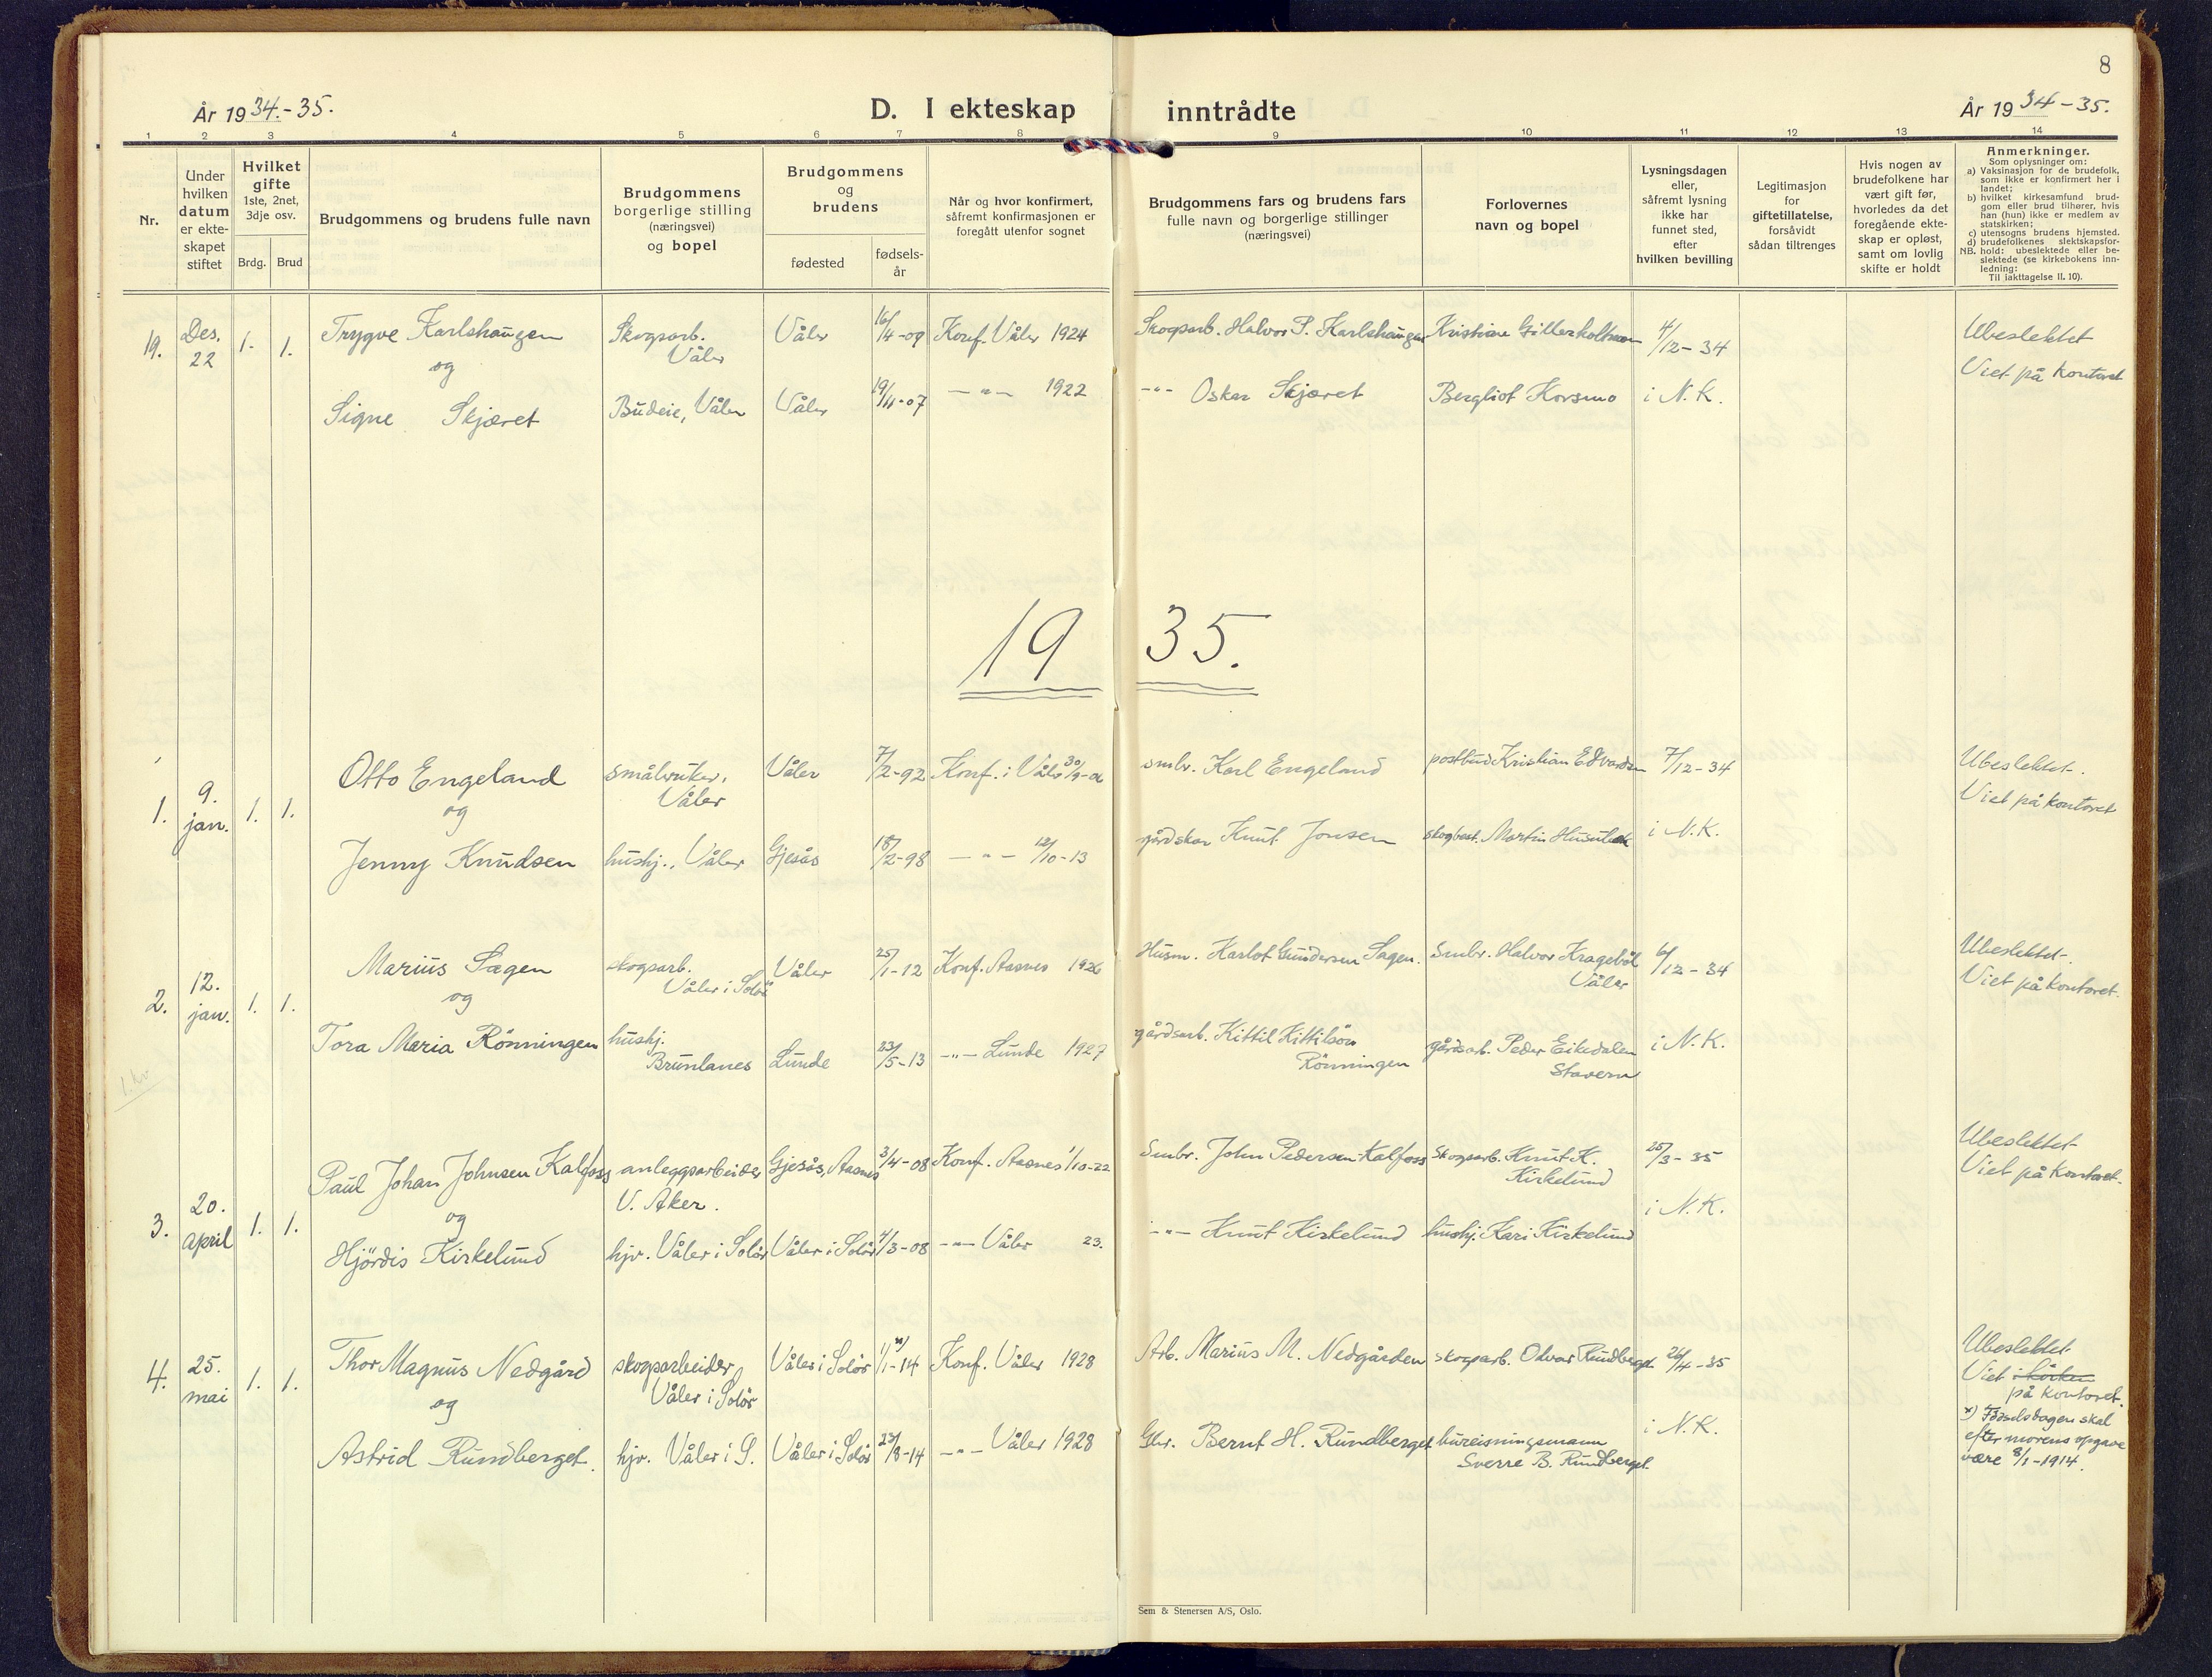 8
År 1934.-35.
D. I ekteskap inntrådte
År 1934-35.
1 2 3 4 5 6 7 8 9 10 11 12 13 14
Nr.
Under hvilken datum er ekte-skapet stiftet
Hvilket gifte 1ste, 2net, 3dje osv.
Brdg. Brud
Brudgommens og brudens fulle navn
Brudgommens borgerlige stilling (næringsvei) og bopel
Brudgommens og brudens
fødested
fødsels-år
Når og hvor konfirmert, såfremt konfirmasjonen er foregått utenfor sognet
Brudgommens fars og brudens fars fulle navn og borgerlige stillinger (næringsvei)
Forlovernes navn og bopel
Lysningsdagen eller, såfremt lysning ikke har funnet sted, efter hvilken bevilling
Legitimasjon for giftetillatelse, forsåvidt sådan tiltrenges
Hvis nogen av brudefolkene har vært gift før, hvorledes da det foregående ekte-skap er opløst, samt om lovlig skifte er holdt
Anmerkninger.
Som oplysninger om:
a) Vaksinasjon for de brudefolk, som ikke er konfirmert her i landet;
b) hvilket kirkesamfund brud-gom eller brud tilhører, hvis han (hun) ikke er medlem av statskirken;
c) utensogns brudens hjemsted.
d) brudefolkenes slektskapsfor-
NB. hold: ubeslektede eller be-slektede (se kirkebokens inn-ledning:
Til iakttagelse II. 10).
19. Des. 22 1. 1. Trygve Karlshaugen Skogsarb. Våler Våler 16/4-09 Konf. Våler 1924 Skogsarb. Halvor P. Karlshaugen Kristiane 4/12-34 Ubeslektet
og Viet på kontoret
Signe Skjæret Budeie, Våler Våler 19/11-07 -"- 1922 -"- Oskar Skjæret Bergliot Korsmo i N.K.
19 35.
1. 9. jan. 1. 1. Otto Engeland småbruker, Våler Våler 7/2-92 Konf. i Våler 30/9-06 smbr. Karl Engeland postbud Kristian Edvardsen 7/12-34 Ubeslektet.
og Viet på kontoret
Jenny Knudsen hushj., Våler Gjesås 18/2-98 -"- 12/10-13 gårdskar Knut Jonsen skogbest. Martin i N.K.
2. 12. jan. 1. 1. Marius Sagen skogsarb. Våler i Solør Våler 25/1-12 Konf. Aasnes 1926 Husm. Karlot Gundersen Sagen. Smbr. Halvor Kragebøl Våler 6/12-34 Ubeslektet.
og Viet på kontoret.
Tora Maria Rönningen hushj. Brunlanes Lunde 23/5-13 -"- Lunde 1927 gårdsarb. Kittil Kittilsön Rönningen gårdsarb. Peder Eikedalen Stavern i N.K.
1. kr
3. 20. april 1. 1. Paul Johan Johnsen Kalfoss anleggsarbeider V. Aker. Gjesås, Aasnes 3/4-08 Konf. Aasnes 1/10-22 Smbr. John Pedersen Kalfoss Skogsarb. Knut K. Kirkelund 25/3-35 Ubeslektet
og Viet på kontoret.
Hjördis Kirkelund hjv. Våler i Solør Våler i Solør 4/3-08 -"- Våler 23. -"- Knut Kirkelund hushj. Kari Kirkelund i N.K.
4. 25. mai 1. 1. Thor Magnus Nedgård skogsarbeider Våler i Solør Våler i Solør 1/1-14 x) Konf. Våler 1928 Arb. Marius M. Nedgården skogsarb. Odvar Rundberget 26/4-35 Ubeslektet
og Viet i kirken på kontoret.
Astrid Rundberget. hjv. Våler i S. Våler i Solør 23/8-14 -"- Våler 1928 Gbr. Bernt H. Rundberget bureisningsmann Sverre B. Rundberget. i N.K.
x) Fødselsdagen skal efter morens opgave være 8/1-1914.
Sem & Stenersen A/S, Oslo.